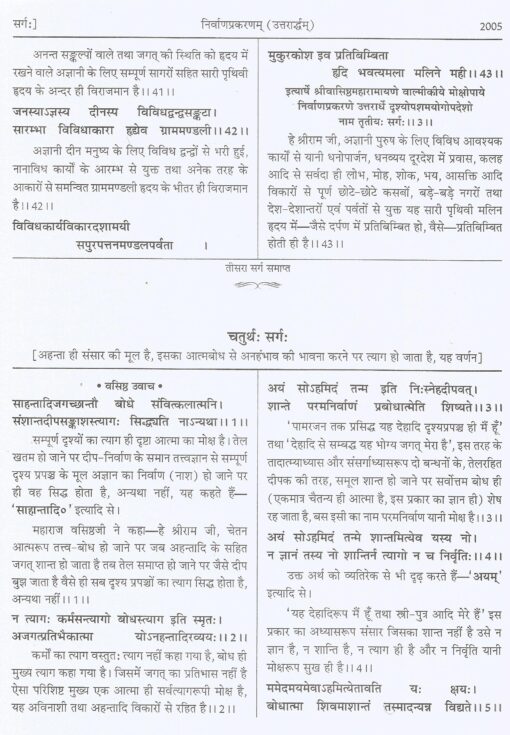 सर्गः]
निर्वाणप्रकरणम् (उत्तरार्द्धम्)
2005
अनन्त सङ्कल्पों वाले तथा जगत् की स्थिति को हृदय में
रखने वाले अज्ञानी के लिए सम्पूर्ण सागरों सहित सारी पृथिवी
हृदय के अन्दर ही विराजमान है।।41।।
जनस्याऽज्ञस्य दीनस्य विविधद्वन्द्वसङ्कटा।
सारम्भा विविधाकारा हृद्येव ग्राममण्डली।।42।।
अज्ञानी दीन मनुष्य के लिए विविध द्वन्द्वों से भरी हुई,
नानाविध कार्यों के आरम्भ से युक्त तथा अनेक तरह के
आकारों से समन्वित ग्राममण्डली हृदय के भीतर ही विराजमान
है।।42।।
विविधकार्यविकारदशामयी
सपुरपत्तनमण्डलपर्वता ।
मुकुरकोश इव प्रतिबिम्बिता
हृदि भवत्यमला मलिने मही।।43।।
इत्यार्षे श्रीवासिष्ठमहारामायणे वाल्मीकीये मोक्षोपाये
निर्वाणप्रकरणे उत्तरार्धे दृश्योपशमयोगपदेशो
नाम तृतीयः सर्गः।।3।।
हे श्रीराम जी, अज्ञानी पुरुष के लिए विविध आवश्यक
कार्यों से यानी धनोपार्जन, धनव्यय दूरदेश में प्रवास, कलह
आदि से सर्वदा ही लोभ, मोह, शोक, भय, आसक्ति आदि
विकारों से पूर्ण छोटे-छोटे कसबों, बड़े-बड़े नगरों तथा
देश-देशान्तरों एवं पर्वतों से युक्त यह सारी पृथिवी मलिन
हृदय में—जैसे दर्पण में प्रतिबिम्बित हो, वैसे—प्रतिबिम्बित
होती ही है।।43।।
तीसरा सर्ग समाप्त
चतुर्थः सर्गः
[अहन्ता ही संसार की मूल है, इसका आत्मबोध से अनहंभाव की भावना करने पर त्याग हो जाता है, यह वर्णन]
• वसिष्ठ उवाच •
साहन्तादिजगच्छान्तौ बोधे संवित्कलात्मनि।
संशान्तदीपसङ्काशस्त्यागः सिद्ध्यति नाऽन्यथा।।1।।
सम्पूर्ण दृश्यों का त्याग ही दृष्टा आत्मा का मोक्ष है। तेल
खतम हो जाने पर दीप-निर्वाण के समान तत्त्वज्ञान से सम्पूर्ण
दृश्य प्रपञ्च के मूल अज्ञान का निर्वाण (नाश) हो जाने पर
ही वह सिद्ध होता है, अन्यथा नहीं, यह कहते हैं—
'साहान्तादि०' इत्यादि से।
महाराज वसिष्ठजी ने कहा—हे श्रीराम जी, चेतन
आत्मरूप तत्त्व-बोध हो जाने पर जब अहन्तादि के सहित
जगत् शान्त हो जाता है तब तेल समाप्त हो जाने पर जैसे दीप
बुझ जाता है वैसे ही सब दृश्य प्रपञ्चों का त्याग सिद्ध होता है,
अन्यथा नहीं।।1।।
न त्यागः कर्मसन्त्यागो बोधस्त्याग इति स्मृतः।
अजगत्प्रतिभैकात्मा योऽनहन्तादिरव्ययः।।2।।
कर्मों का त्याग वस्तुतः त्याग नहीं कहा गया है, बोध ही
मुख्य त्याग कहा गया है। जिसमें जगत् का प्रतिभास नहीं है
ऐसा परिशिष्ट मुख्य एक आत्मा ही सर्वत्यागरूपी मोक्ष है,
यह अविनाशी तथा अहन्तादि विकारों से रहित है।।2।।
अयं सोऽहमिदं तन्म इति निःस्नेहदीपवत्।
शान्ते परमनिर्वाणं प्रबोधात्मेति शिष्यते।।3।।
'पामरजन तक प्रसिद्ध यह देहादि दृश्यप्रपञ्च ही मैं हूँ'
तथा 'देहादि से सम्बद्ध यह भोग्य जगत् मेरा है', इस तरह के
तादात्म्याध्यास और संसर्गाध्यासरूप दो बन्धनों के, तेलरहित
दीपक की तरह, समूल शान्त हो जाने पर सर्वोत्तम बोध ही
(एकमात्र चैतन्य ही आत्मा है, इस प्रकार का ज्ञान ही) शेष
रह जाता है, बस इसी का नाम परमनिर्वाण यानी मोक्ष है।।3।।
अयं सोऽहमिदं तन्मे शान्तमित्येव यस्य नो।
न ज्ञानं तस्य नो शान्तिर्न त्यागो न च निर्वृतिः।।4।।
उक्त अर्थ को व्यतिरेक से भी दृढ़ करते हैं—'अयम्'
इत्यादि से।
'यह देहादिरूप मैं हूँ तथा स्त्री-पुत्र आदि मेरे हैं' इस
प्रकार का अध्यासरूप संसार जिसका शान्त नहीं है उसे न
ज्ञान है, न शान्ति है, न त्याग ही है और न निर्वृति यानी
मोक्षरूप सुख ही है।।4।।
ममेदमयमेवाऽहमित्येतावति यः क्षयः।
बोधात्मा शिवमाशान्तं तस्मादन्यन्न विद्यते।।5।।